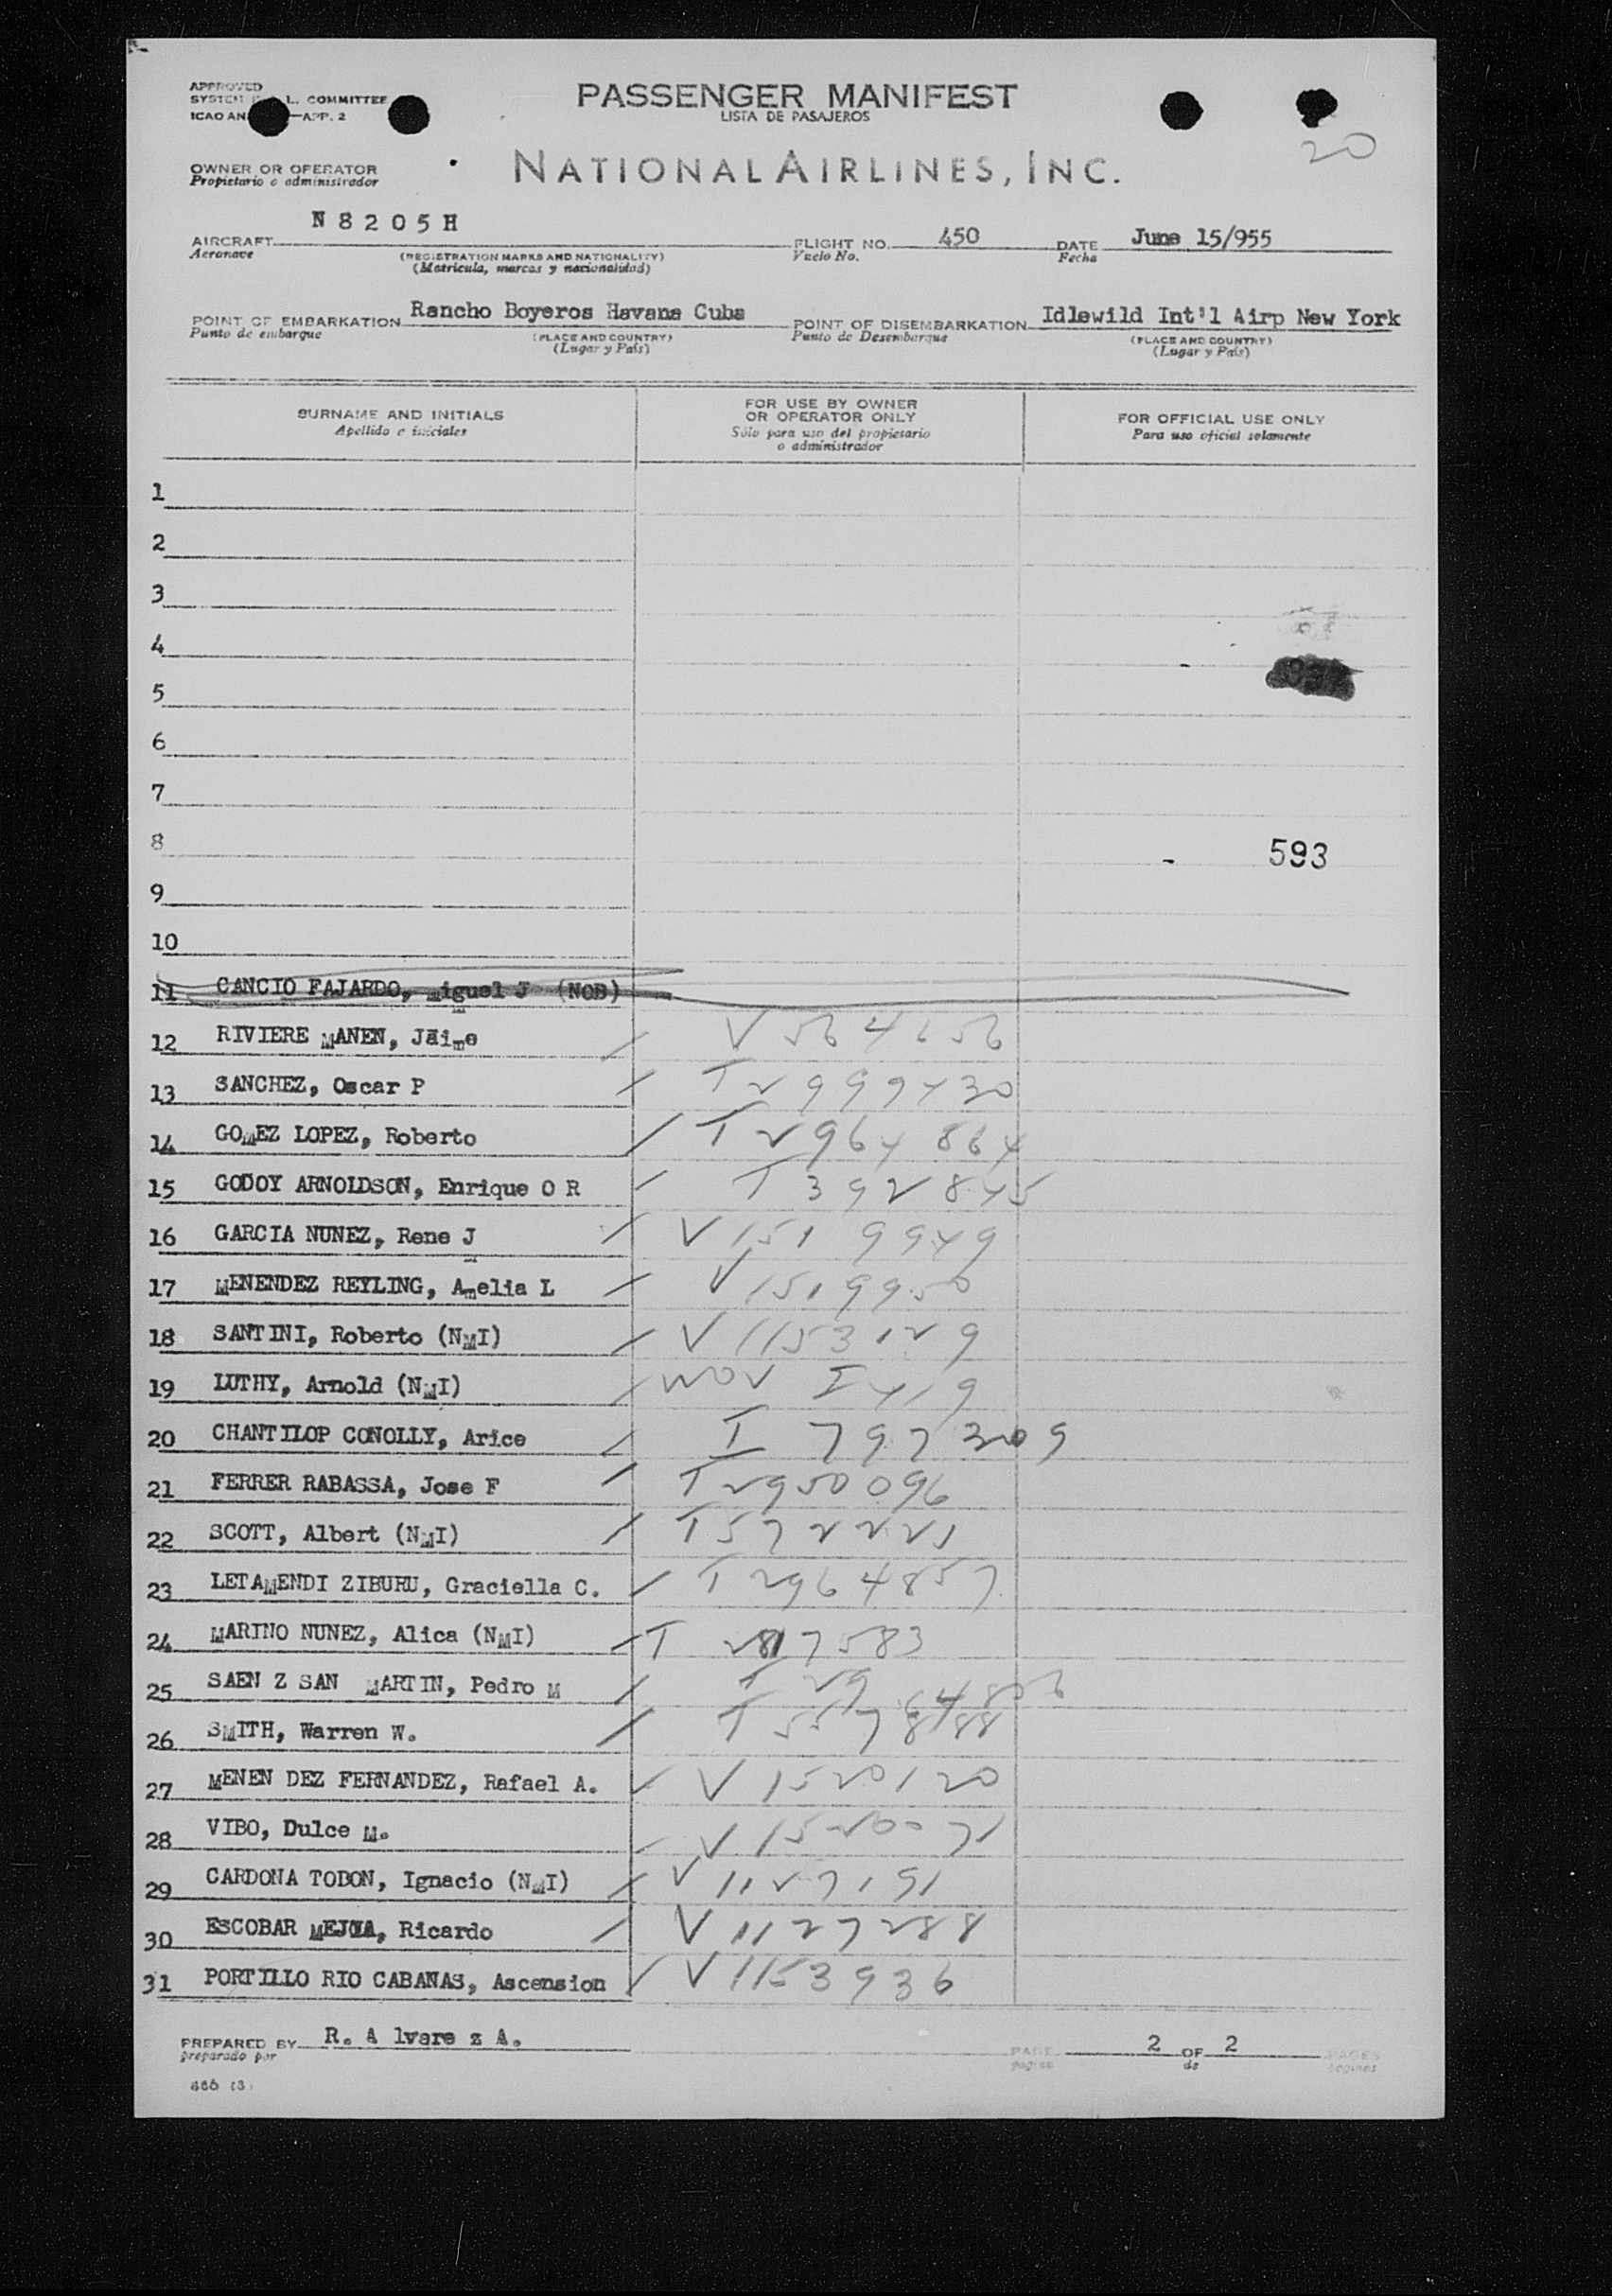 APPROVED
L. COMMITTEE
ICAO AN APP. 2
PASSENGER MANIFEST
LISTA DE PASAJEROS
20
OWNER OR OPERATOR
Propietario o administrador
NATIONAL AIRLINES, INC.
N8205H
AIRCRAFT
Aeronave
(REGISTRATION MARKS AND NATIONALITY)
(Matrícula, marcas y nacionalidad)
FLIGHT NO. 450
Vuelo No.
DATE June 15/955
Fecha
POINT OF EMBARKATION Rancho Boyeros Havana Cuba
Punto de embarque
(PLACE AND COUNTRY)
(Lugar y País)
POINT OF DISEMBARKATION Idlewild Int'l Airp New York
Punto de Desembarque
(PLACE AND COUNTRY)
(Lugar y País)
SURNAME AND INITIALS
Apellido e iniciales
FOR USE BY OWNER
OR OPERATOR ONLY
Sólo para uso del propietario
o administrador
FOR OFFICIAL USE ONLY
Para uso oficial solamente
1
2
3
4
5
6
7
8 593
9
10
11 CANCIO FAJARDO, Miguel J (NOB)
12 RIVIERE MANEN, Jaime
13 SANCHEZ, Oscar P
14 GOMEZ LOPEZ, Roberto T 2964 864
15 GODOY ARNOLDSON, Enrique O R T 392845
16 GARCIA NUNEZ, Rene J V 151 9949
17 MENENDEZ REYLING, Amelia L V 1519950
18 SANTINI, Roberto (NMI) V 1153129
19 LUTHY, Arnold (NMI)
20 CHANTILOP CONOLLY, Arice
21 FERRER RABASSA, Jose F T 2950096
22 SCOTT, Albert (NMI) T 5722221
23 LETAMENDI ZIBURU, Graciella C. T 2964857
24 MARINO NUNEZ, Alica (NMI)
25 SAEN Z SAN MARTIN, Pedro M
26 SMITH, Warren W.
27 MENEN DEZ FERNANDEZ, Rafael A. V 1520120
28 VIBO, Dulce M.
29 CARDONA TOBON, Ignacio (NMI) V 1127191
30 ESCOBAR MEJIA, Ricardo V 1127288
31 PORTILLO RIO CABANAS, Ascension V 1153936
PREPARED BY R. A lvare z A.
preparado por
PAGE 2 OF 2 PAGES
página de páginas